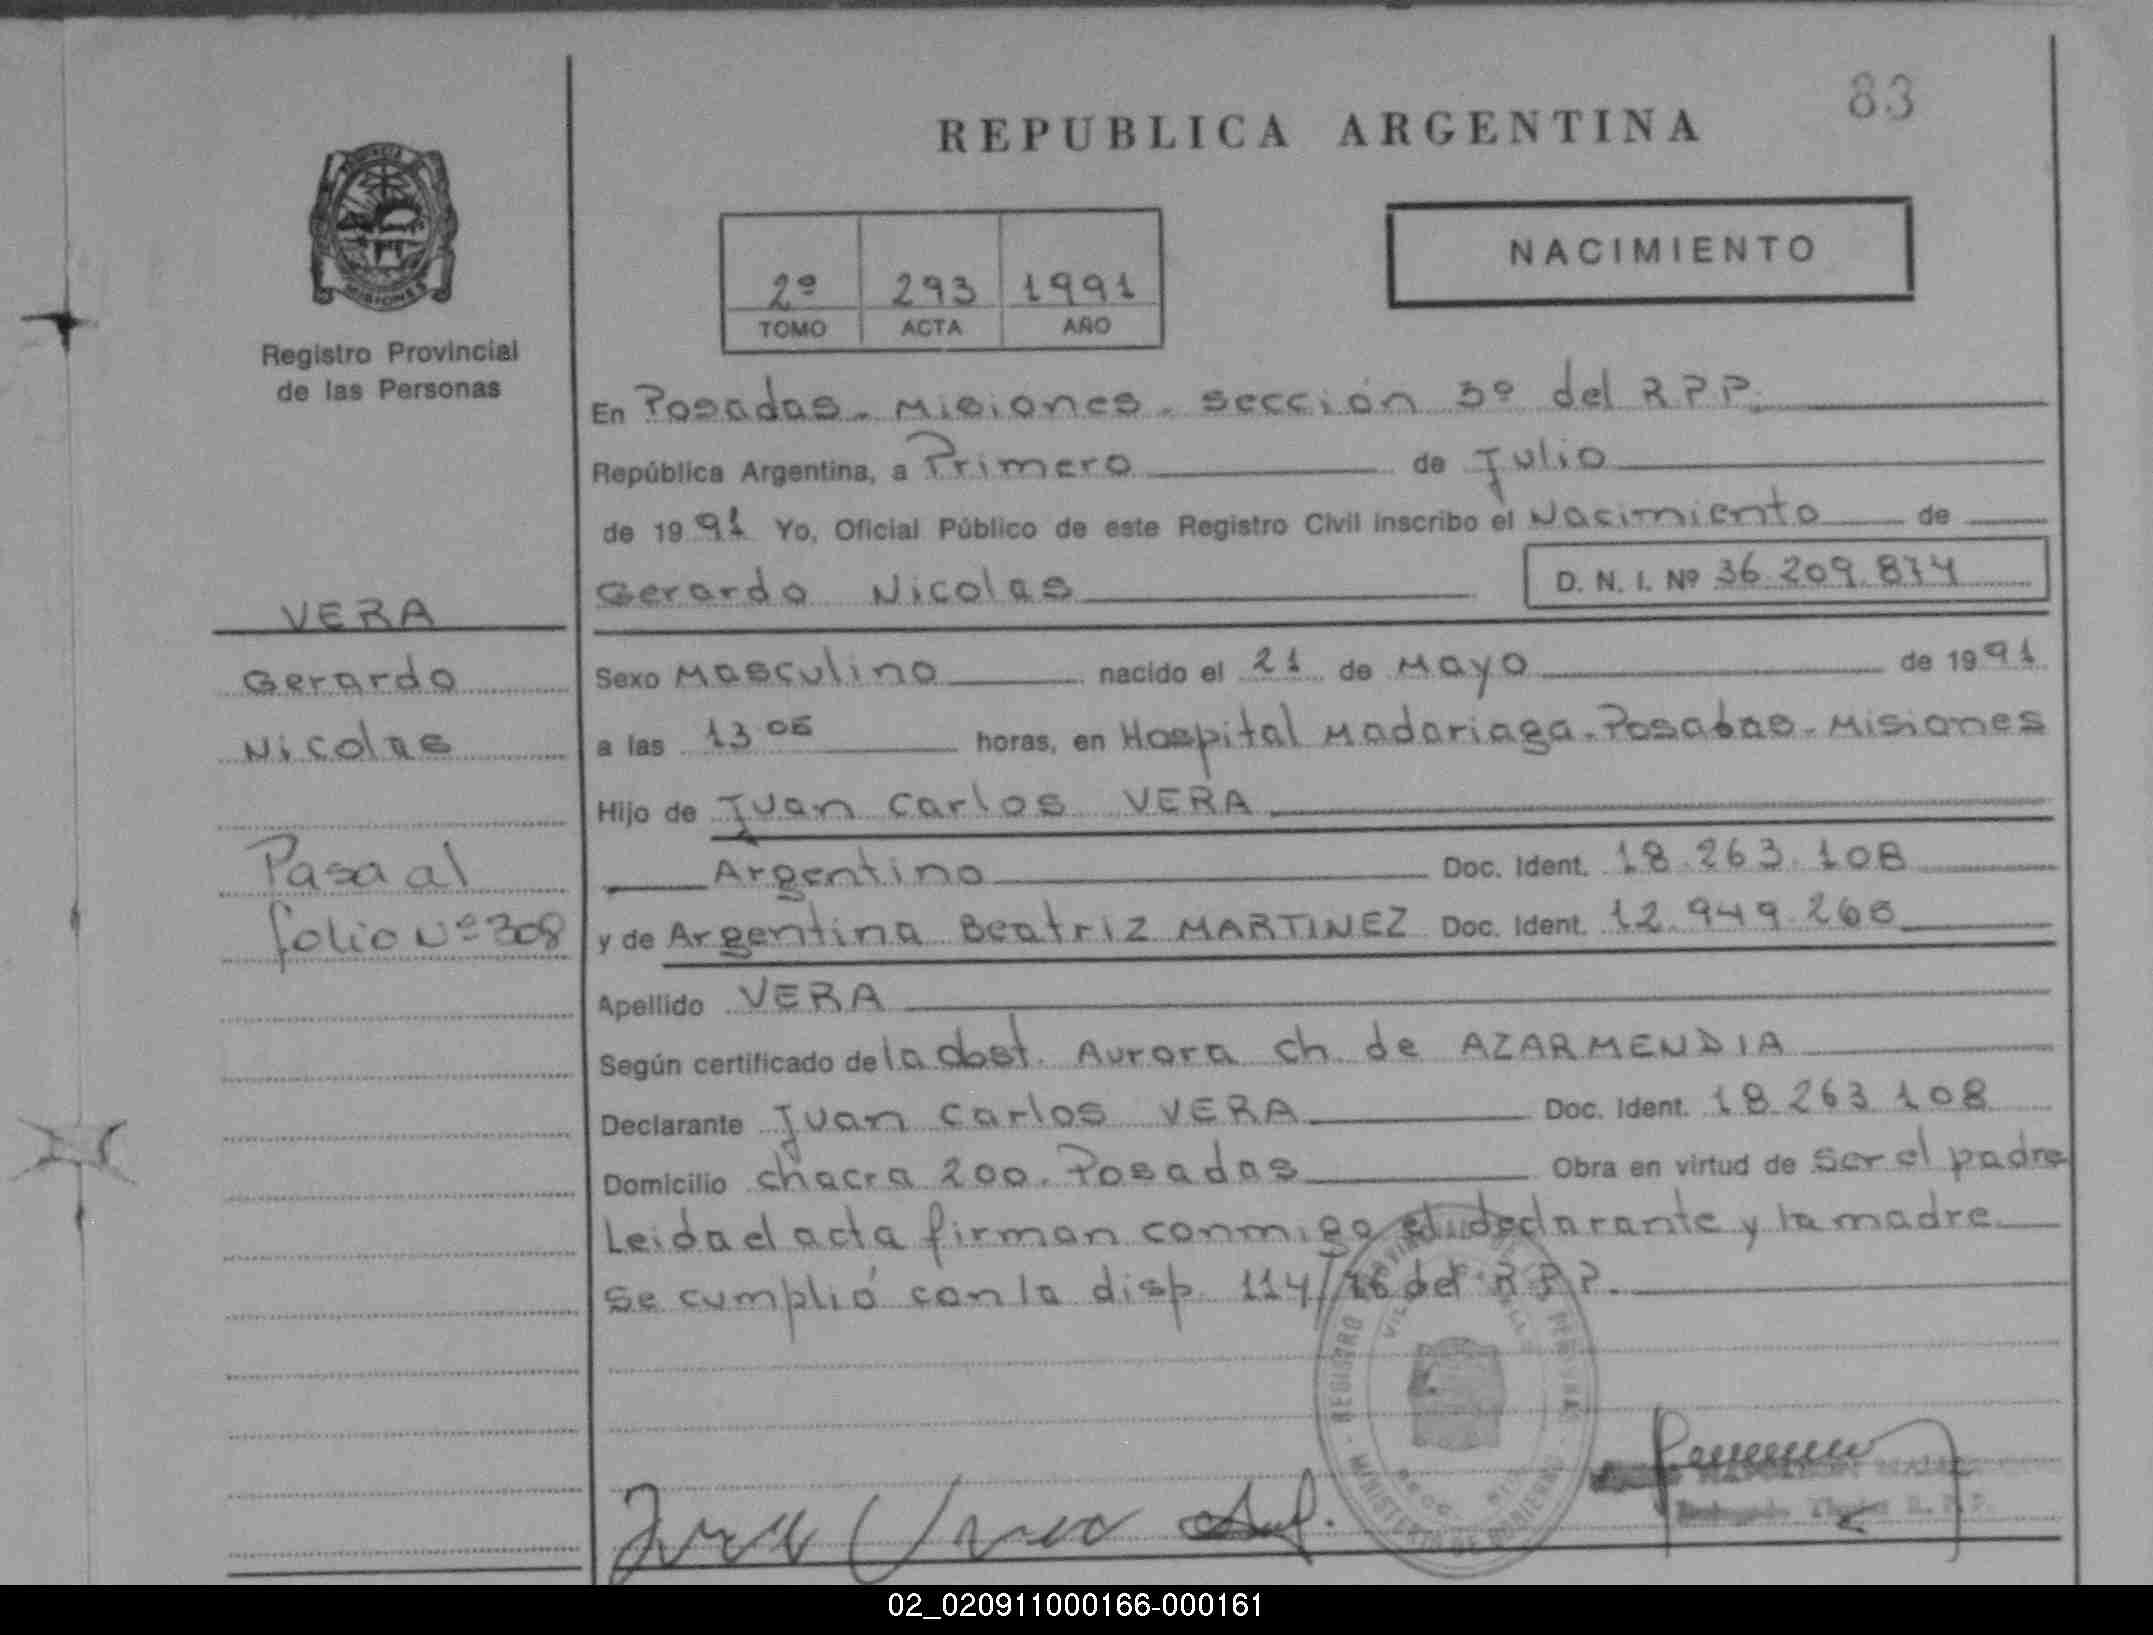 83
REPUBLICA ARGENTINA
NACIMIENTO
2º 293 1991
TOMO ACTA AÑO
Registro Provincial
de las Personas
MISIONES
En Posadas - Misiones - sección 3º del R P P.
República Argentina, a Primero de Julio
de 19 91 Yo, Oficial Público de este Registro Civil inscribo el Nacimiento de
Gerardo Nicolas D. N. I. Nº 36.209.874
VERA
Gerardo
Nicolas
Pasa al
folio Nº 308
Sexo Masculino nacido el 21 de Mayo de 19 91
a las 13 05 horas, en Hospital Madariaga - Posadas - Misiones
Hijo de Juan Carlos VERA
Argentino Doc. Ident. 18.263.108
y de Argentina Beatriz MARTINEZ Doc. Ident. 12.949.268
Apellido VERA
Según certificado de la obst. Aurora Ch. de AZARMENDIA
Declarante Juan Carlos VERA Doc. Ident. 18.263.108
Domicilio chacra 200. Posadas Obra en virtud de ser el padre
Leida el acta firman conmigo el declarante y la madre
Se cumplió con la disp. 114/76 del R P P.
REGISTRO PROVINCIAL DE LAS PERSONAS
MINISTERIO DE GOBIERNO
02_020911000166-000161